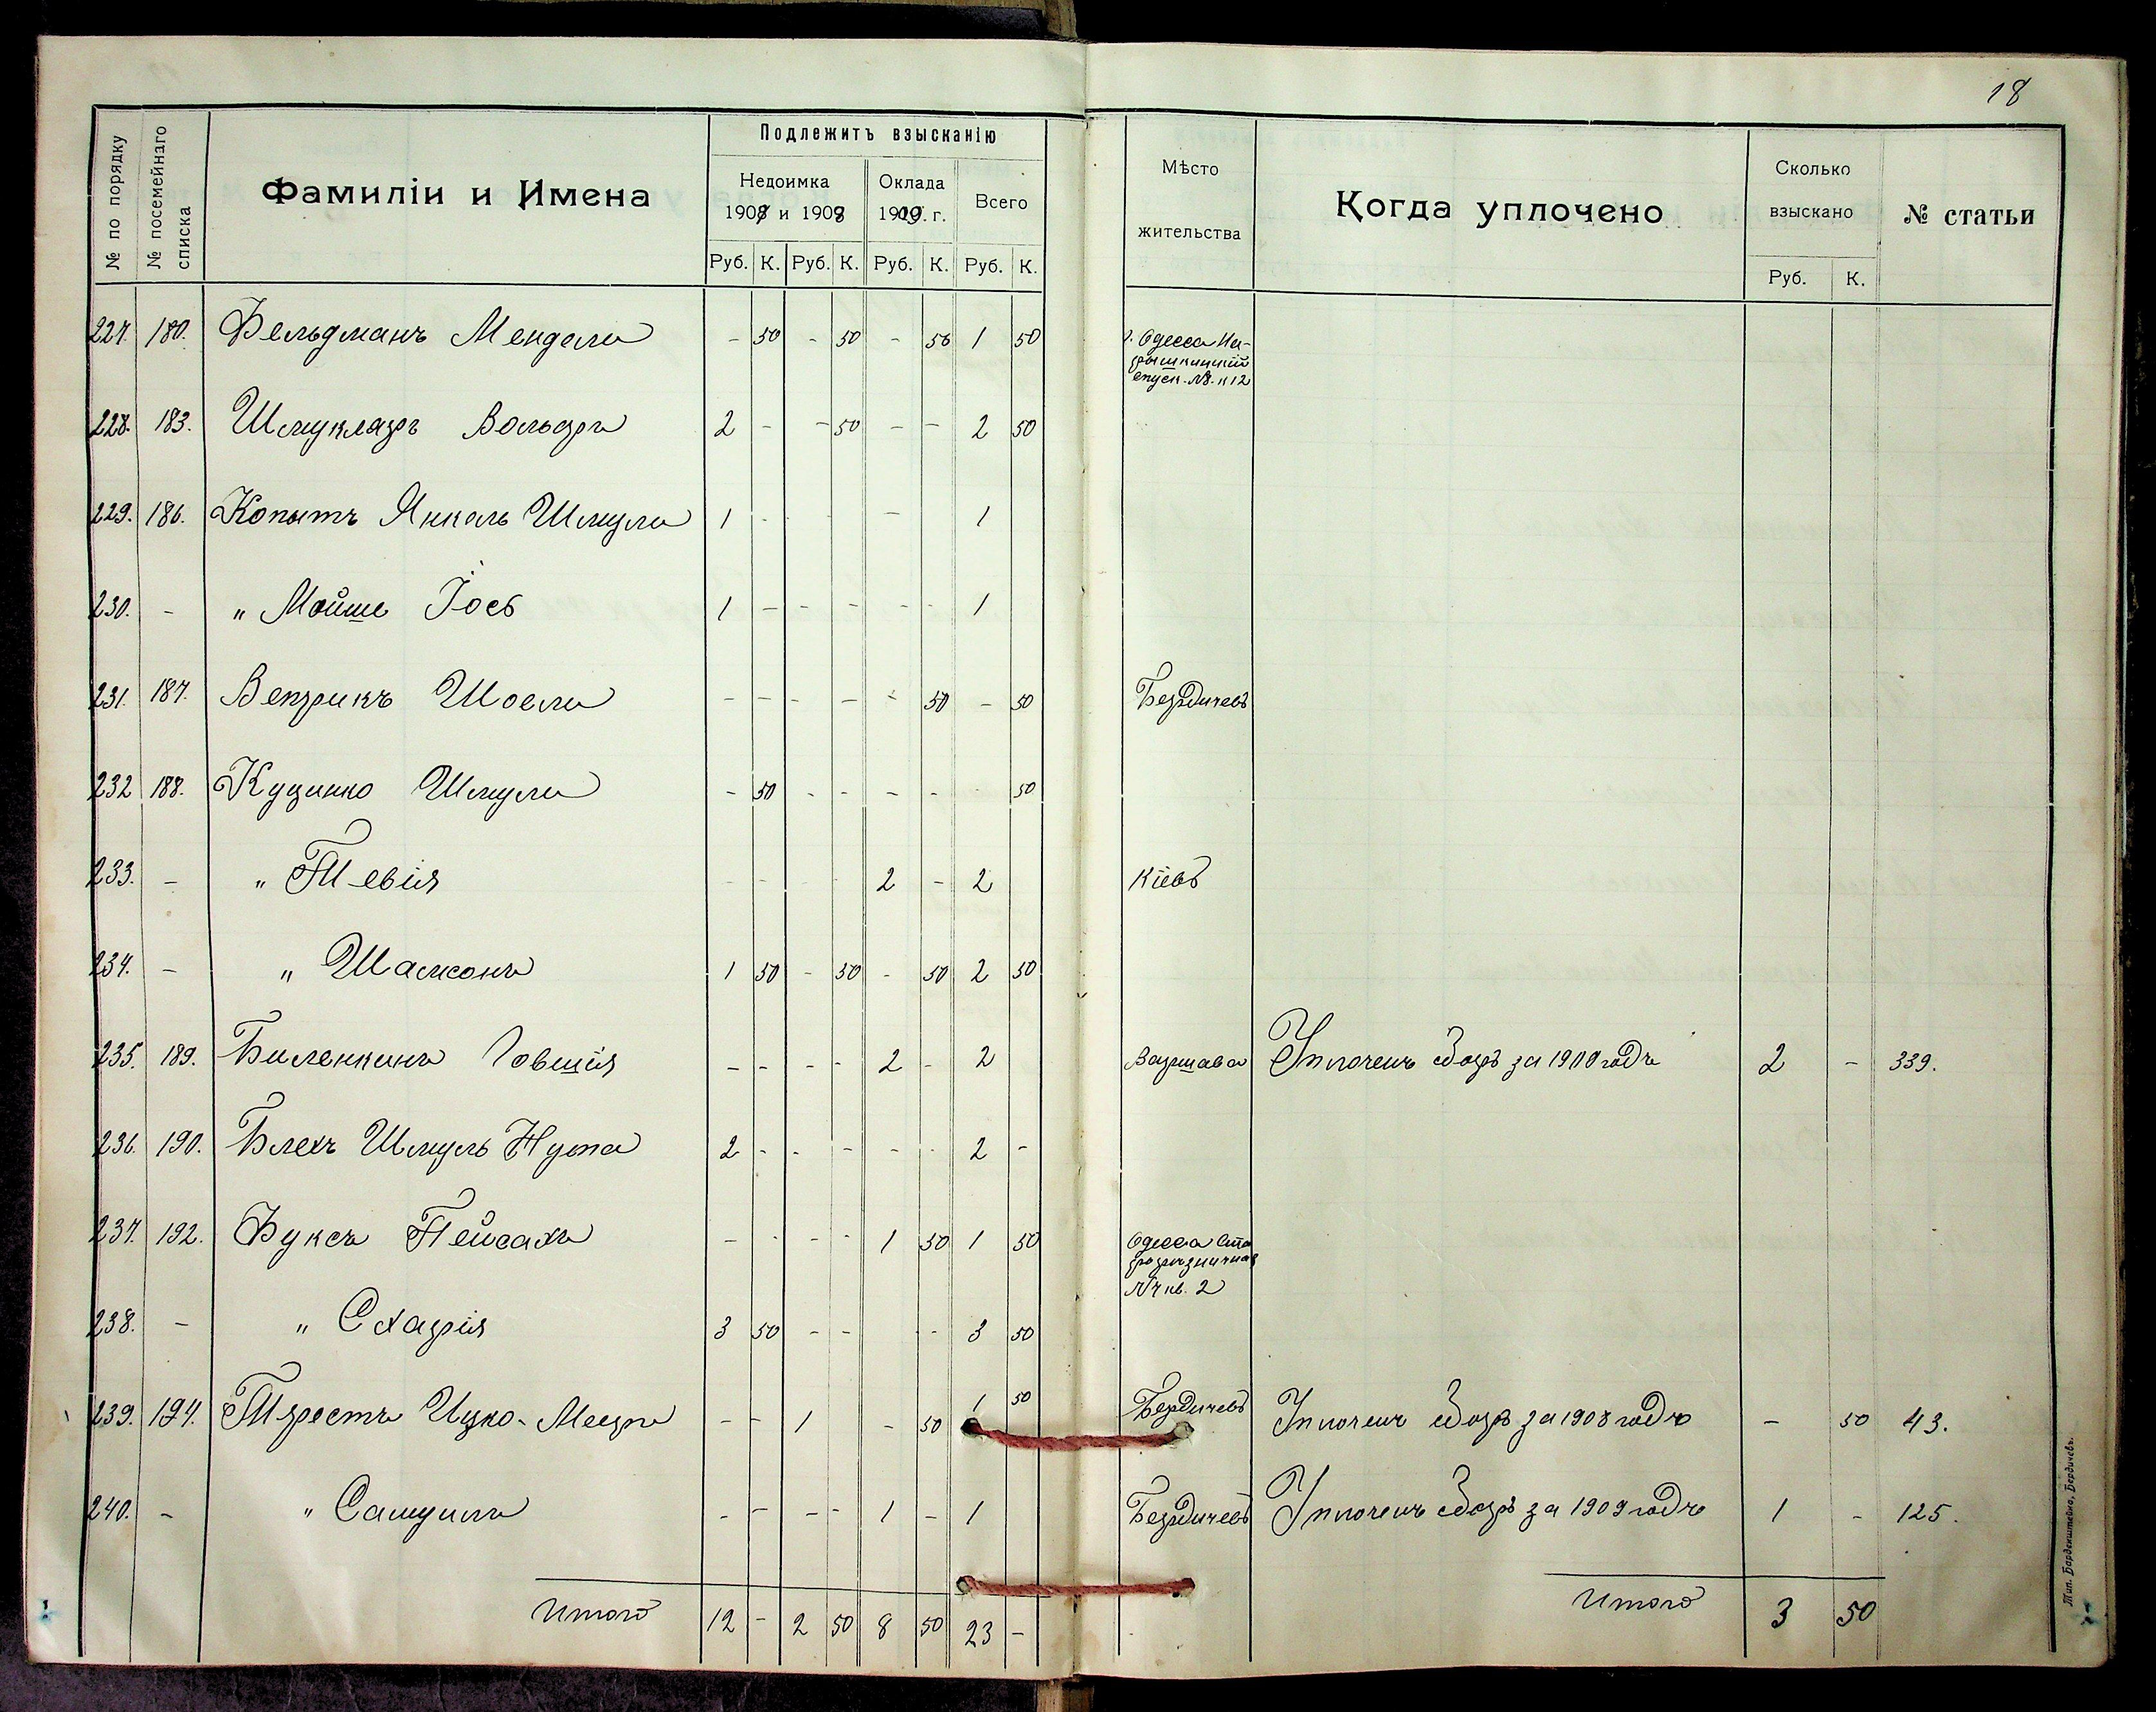 18
№ по порядку
№ посемейнаго списка
Фамиліи и Имена
Подлежитъ взысканію
Недоимка
1907 и 1908
Оклада
1909 г.
Всего
Руб. К. Руб. К. Руб. К. Руб. К.
Мѣсто
жительства
Когда уплочено
Сколько
взыскано
Руб. К.
№ статьи
227. 180. Фельдманъ Мендель - 50 - 50 - 50 1 50 г. Одесса На-
рышкинскій
спуск. №8. к 12
228. 183. Шмуклеръ Вольфъ 2 - - 50 - - 2 50
229. 186. Копытъ Янкель Шмуль 1 - - - - 1
230. - " Мойше Іось 1 - - - - - 1
231. 187. Веприкъ Шоель - - - - - 50 - 50 Бердичевъ
232 188. Куценко Шмуль - 50 - - - - - 50
233. - " Тевія - - - - 2 - 2 Кіевъ
234. - " Шамсонъ 1 50 - 50 - 50 2 50
235. 189. Биленкинъ Говшія - - - - 2 - 2 Варшава Уплоченъ сборъ за 1909 годъ 2 - 339.
236. 190. Блехъ Шмуль Нута 2 - - - - - 2 -
237. 192. Фуксъ Пейсахъ - - - - 1 50 1 50 Одесса Ста
ропорто
№ 4 кв. 2
238. - " Схарія 3 50 - - - - 3 50
239. 194. Трестъ Ицко-Мееръ - - 1 - 50 1 50 Бердичевъ Уплоченъ сборъ за 1908 годъ - 50 43.
240. - " Самуилъ - - - - 1 - 1 Бердичевъ Уплоченъ сборъ за 1909 годъ 1 - 125.
Итого 12 - 2 50 8 50 23 -
Итого 3 50
Тип. Барденштейна, Бердичевъ.